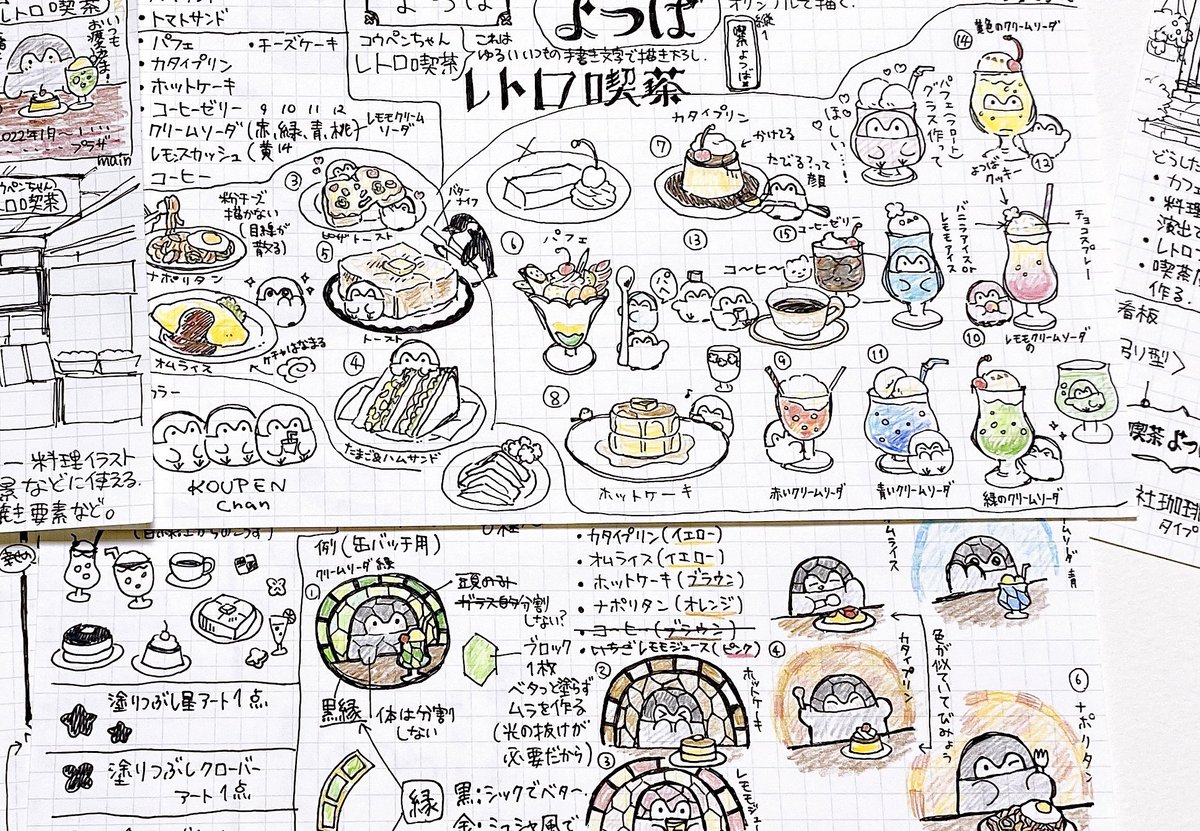 レトロ喫茶
いつも
お疲れさま!
2022年1月〜
プラザ
main
コウペンちゃん
レトロ喫茶
・トマトサンド
・パフェ ・チーズケーキ
・カタイプリン
・ホットケーキ
・コーヒーゼリー 9 10 11 12
クリームソーダ(赤,緑,青,桃)
レモンスカッシュ(黄 14
コーヒー
よつば
コウペンちゃん
レトロ喫茶
これは
ゆるいいつもの手書き文字で描き下ろし.
よつば
レトロ喫茶
オリジナルで描く.
縦1
喫茶よつば
レモモクリーム
ソーダ
③
ピザトースト
粉チーズ
描かない
(目線が
散る)
ナポリタン
オムライス
ケチャはなまる
⑤
バター
ナイフ
トースト
④
たまご&ハムサンド
KOUPEN
chan
⑥ パフェ
カタイプリン
⑦
かけてる
たべる?って
顔
⑬
⑮ コーヒーゼリー
コ〜ヒ〜
⑧
ホットケーキ
⑨
赤いクリームソーダ
⑪
青いクリームソーダ
⑩
レモモクリームソーダの
緑のクリームソーダ
ほし〜…!
パフェ(フロート)
グラス作って
⑭ 黄色のクリームソーダ
よつば
クッキー
⑫
バニラアイスor
レモモアイス
チョコスプレー
どうした
・カフ
・料理
演出で
・レトロ
・喫茶
作る.
看板
喫茶よつ
社珈琲
タイプ
料理イラスト
景などに使える.
き要素など。
塗りつぶし星アート1点
塗りつぶしクローバー
アート1点
例(缶バッチ用)
クリームソーダ緑
①
頭のみ
ガラス的分割
しない?
ブロック
1枚
ベタっと塗らず
ムラを作る
(光の抜けが
必要だから)
黒縁
体は分割
しない
縁
黒:シックでベター.
金:ミュシャ風で
・カタイプリン(イエロー)
・オムライス(イエロー)
・ホットケーキ(ブラウン)
・ナポリタン(オレンジ)
・コーヒー(ブラウン)
・いちごレモモジュース(ピンク)
②
ホットケーキ
③
④
カタイプリン
色が似ていてびみょう
⑥
ナポリタン